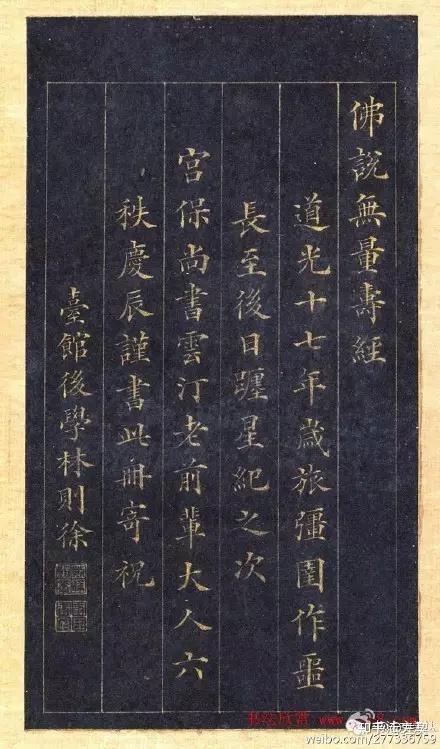 佛說無量壽經
道光十七年歲旅彊圉作噩
長至後日躔星紀之次
宮保尚書雲汀老前輩大人六
秩慶辰謹書此冊寄祝
臺館後學林則徐
书法欣赏
weibo.com/277336759